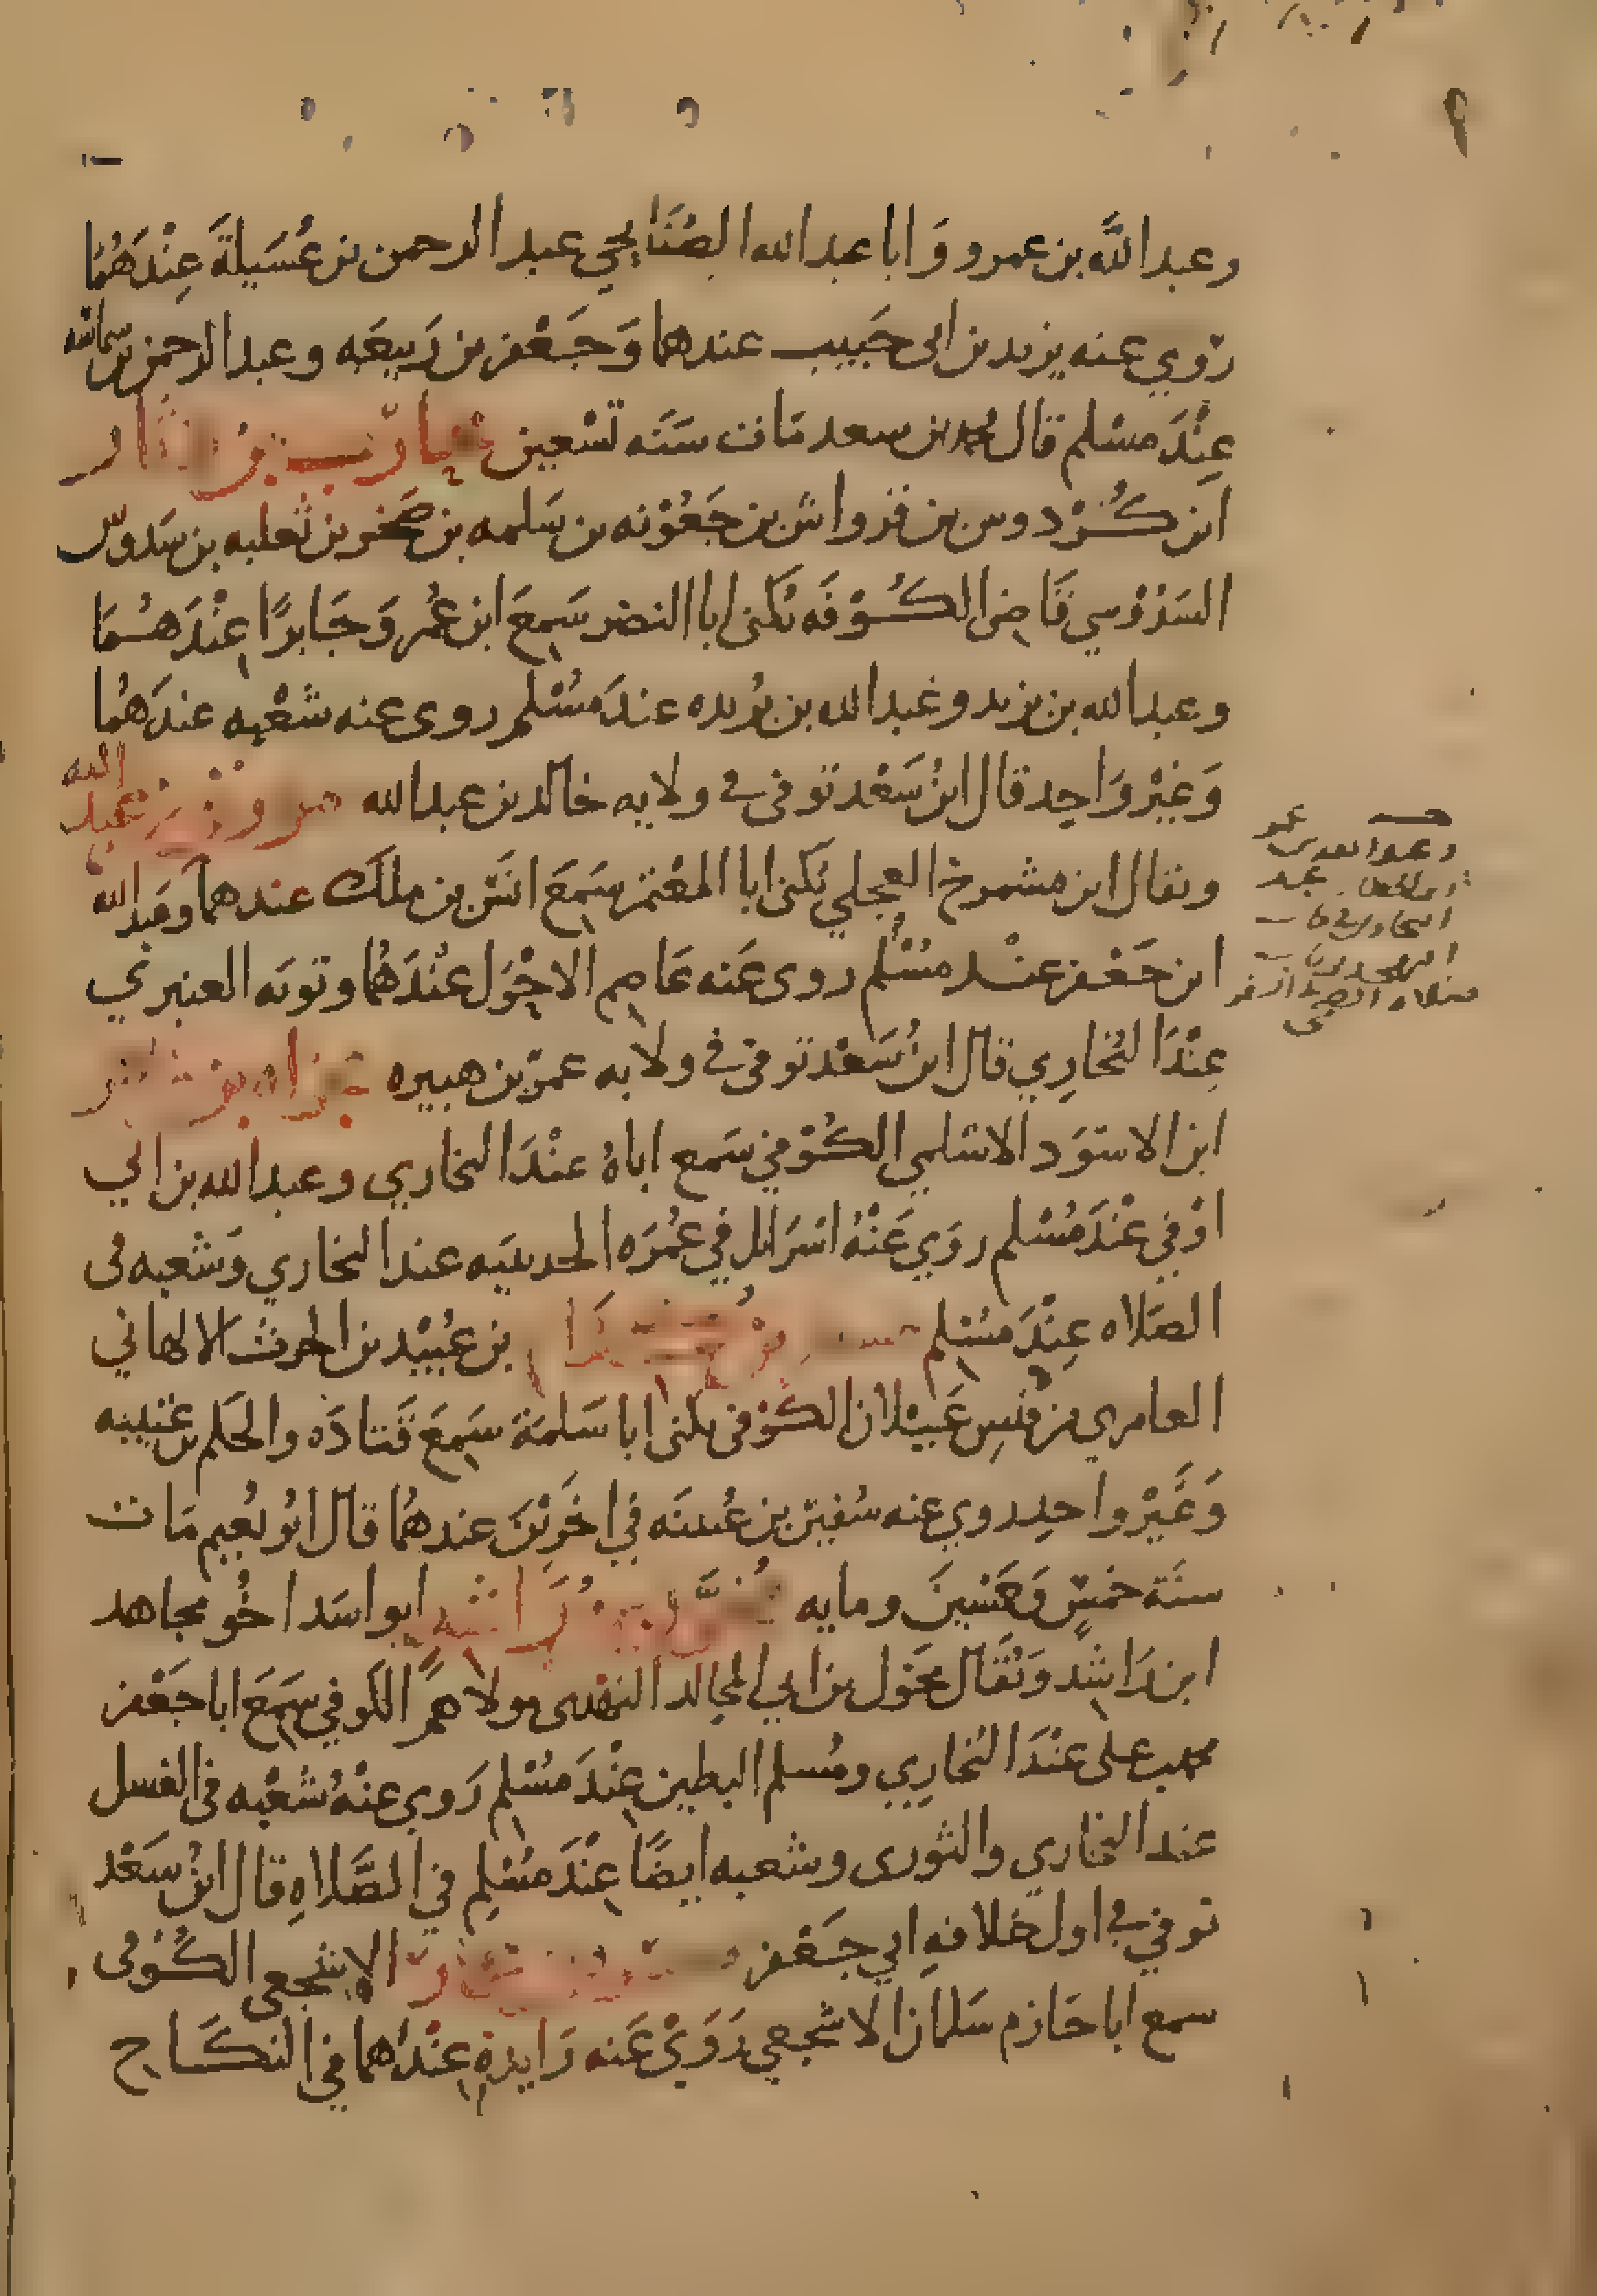 وعبد اللَّه بن عمرو وَابا عبد الله الصُنَابحي عبد الرحمن بن عُسَيلةَ عِنْدَهُمَا
رَوي عنه يزيد بن ابى حَبيب عندهما وَجَعْفر بن رَبيعَه وعبد الرحمن بن شماسه
عِنْدَ مسْلم قال محمد بن سعد مَات سَنَه تسْعين محارب بن دثار
ابن كُرْدوس بن قرواش بن جَعْوَنه بن سَلمه بن صَخر بن ثَعلبه بن سَدوس
السَدُوْسي قَاضى الكُوْفَه يُكَنى ابا النضر سَمِعَ ابن عُمر وَجَابرًا عِنْدَهُمَا
وعبد الله بن يزيد وعبد الله بن بُريده عندَ مسُلم روى عنه شعْبه عندَهُما
وَغيْر وَاحِد قال ابنُ سَعْد توفى فى ولايه خالد بن عبد الله مورق بن عبد الله
ويقال ابن مشمرخ العِجلي يُكَنى ابا المعْتمر سَمِعَ انَس بن ملك عندهما وعَبد الله
ابن جَعْفر عنْد مسُلم روى عَنه عَاصم الاحْوَل عنْدَهُما وتوبَه العنبري
عِنْدَ البُخارِي قال ابنُ سَعْد توفى فى ولايه عمر بن هبيره مجزاه بن زاهر
ابن الاسْوَد الاسْلمي الكُوْفي سَمع اباهُ عنْدَ البخاري وعبد الله بن ابي
اوْفي عْندَ مُسْلم روَي عَنْهُ اسْرَائل في عُمرَه الحديبيَه عند البخاري وَشعبه فى
الصَلاه عِنْدَ مسْلم مسعر بن كدام بن عُبيْد بن الحرث الالهاني
العامري من قيس عَيْلان الكوْفى يكنى ابا سَلمَة سَمِعَ قَتادَه والحَكم بن عُتيبه
وَغَيْر واحِد روي عنه سُفيٰن بن عُيينَه في اخَرِيْنَ عندهُما قال ابُو نُعيم مَات
سنَة خمسٍ وَخَمْسينَ ومايه مُخَوَّل بن رَاشد ابو اسَد اخُو مجاهد
ابن رَاشد وَيُقَال مخَول بن ابي المجالد النهدى مولاهمُ الكوفي سَمِعَ ابا جَعْفر
محمد بن على عنْدَ البُخارِي ومُسلم البطين عِنْدَ مسُلم رَوي عنْهُ شُعْبه فى الغسل
عند البخاري والثورى وشعبه ايضًا عِنْدَ مسُلِم في الصَّلاهِ قال ابنُ سَعْد
توفي في اول خلافهِ ابي جَعْفر ميسره بن عمار الاشجعى الكُوْفى
سمع ابا حَازم سَلمان الاشجعي رَوَيْ عَنه زَايدة عِنْدَهُما في النكَاح